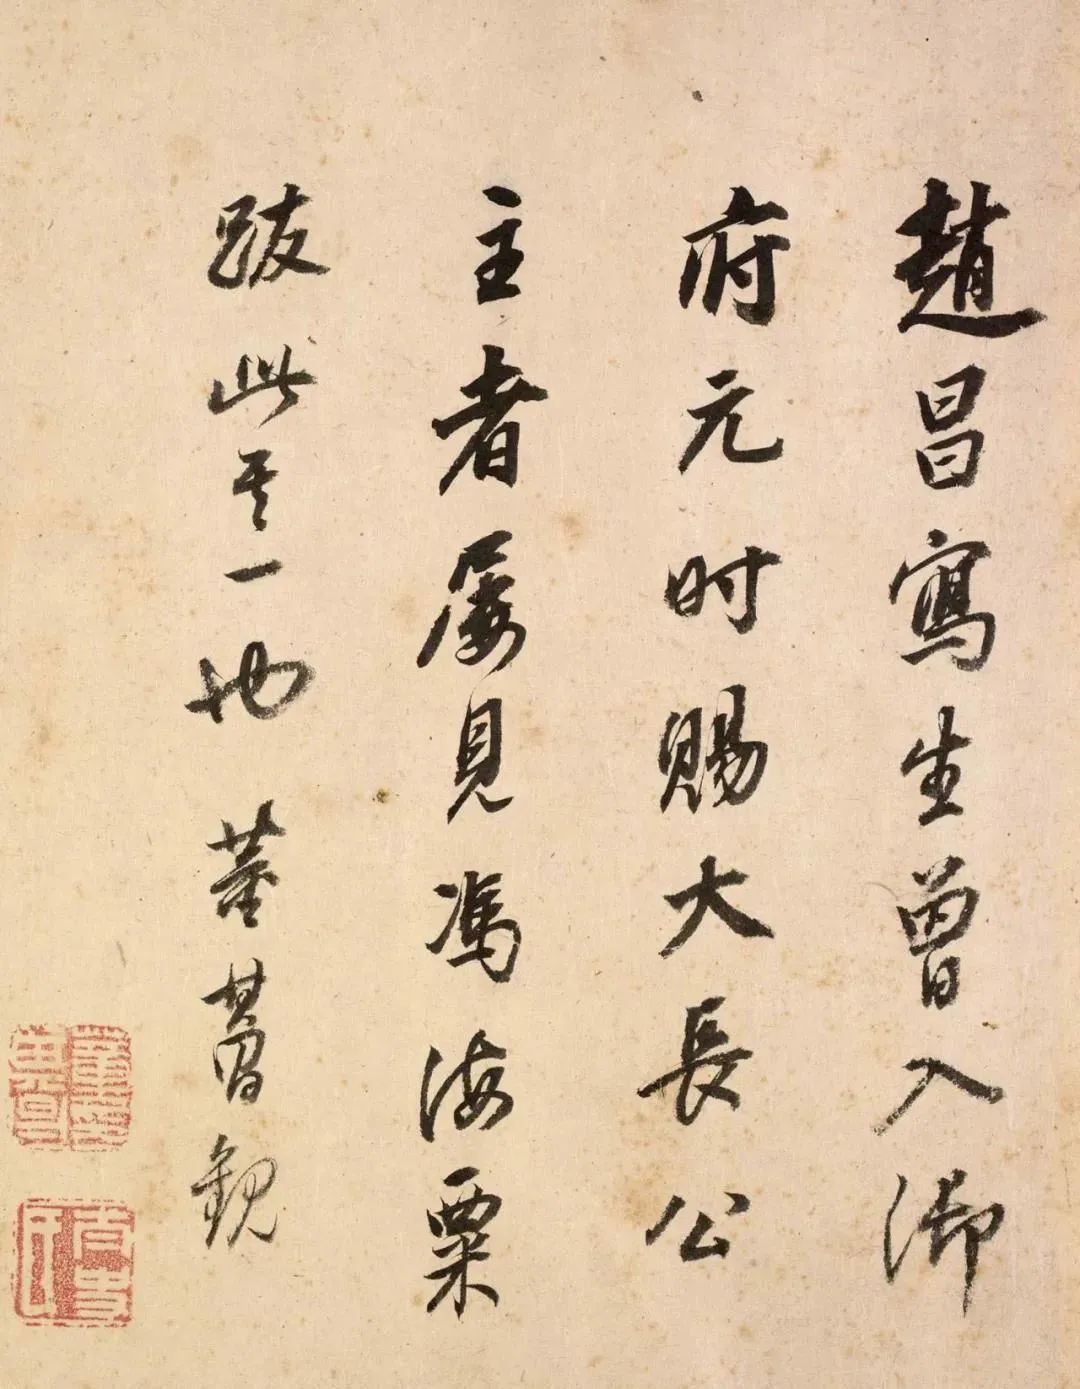 趙昌寫生曾入御
府元时賜大長公
主者屡見馮海粟
跋此其一也 董其昌觀